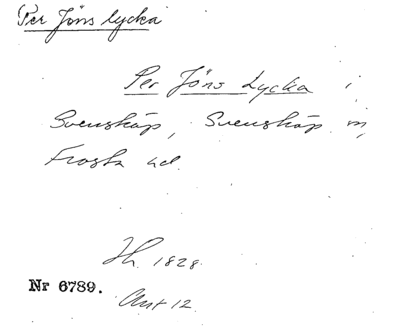 Per Jöns lycka
Per Jöns Lycka i
Svenskåp, Svenskåp sn,
Frosta hd.
Lh. 1828.
Nr 6789.
Akt 12.